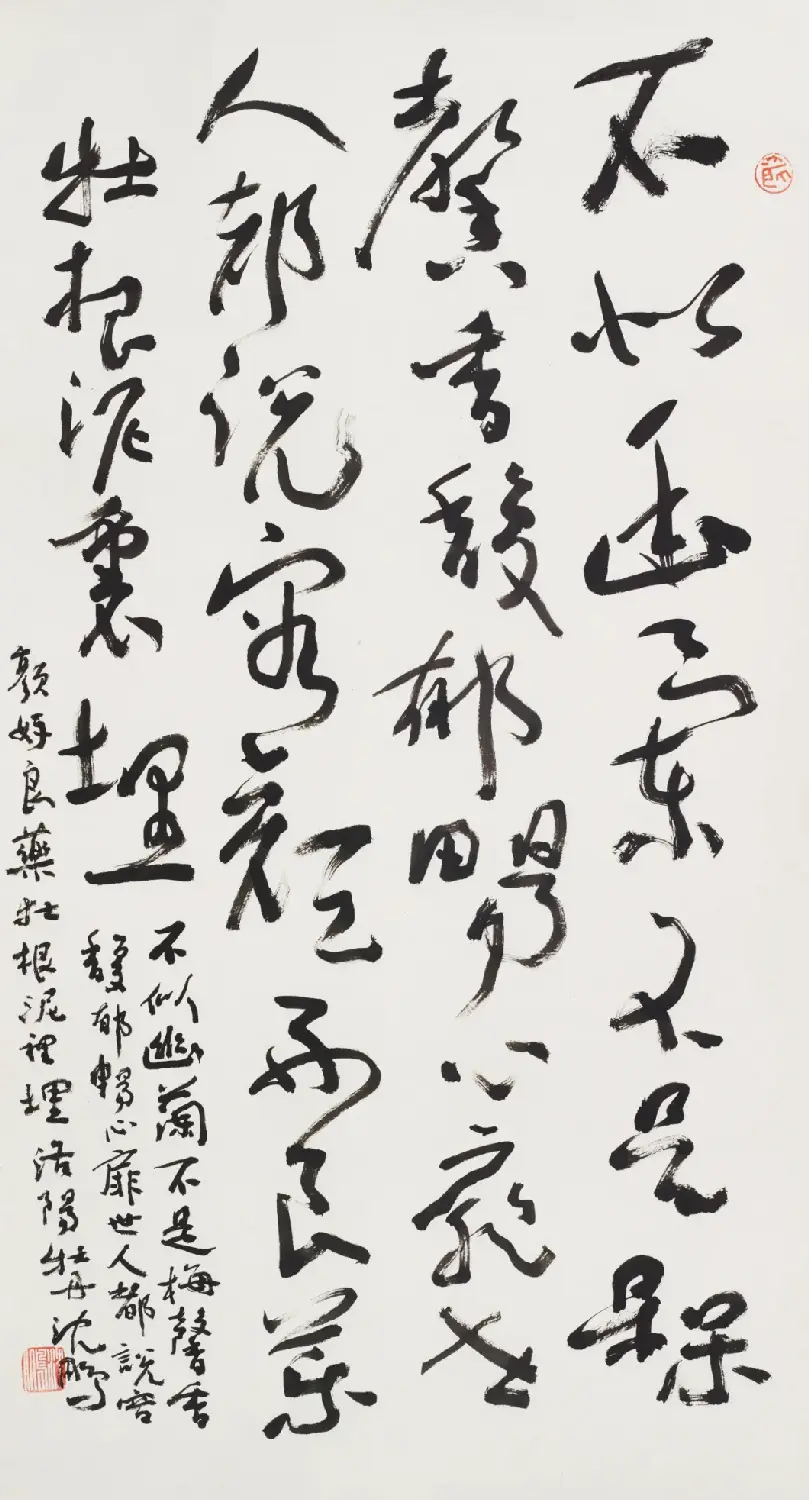 不似幽蘭不是槑
馨香馥郁暢心扉世
人都説容顏好良藥
牡根泥裏埋
不似幽蘭不是梅馨香
馥郁暢心扉世人都說容
顏好良藥牡根泥裡埋洛陽牡丹沈鵬